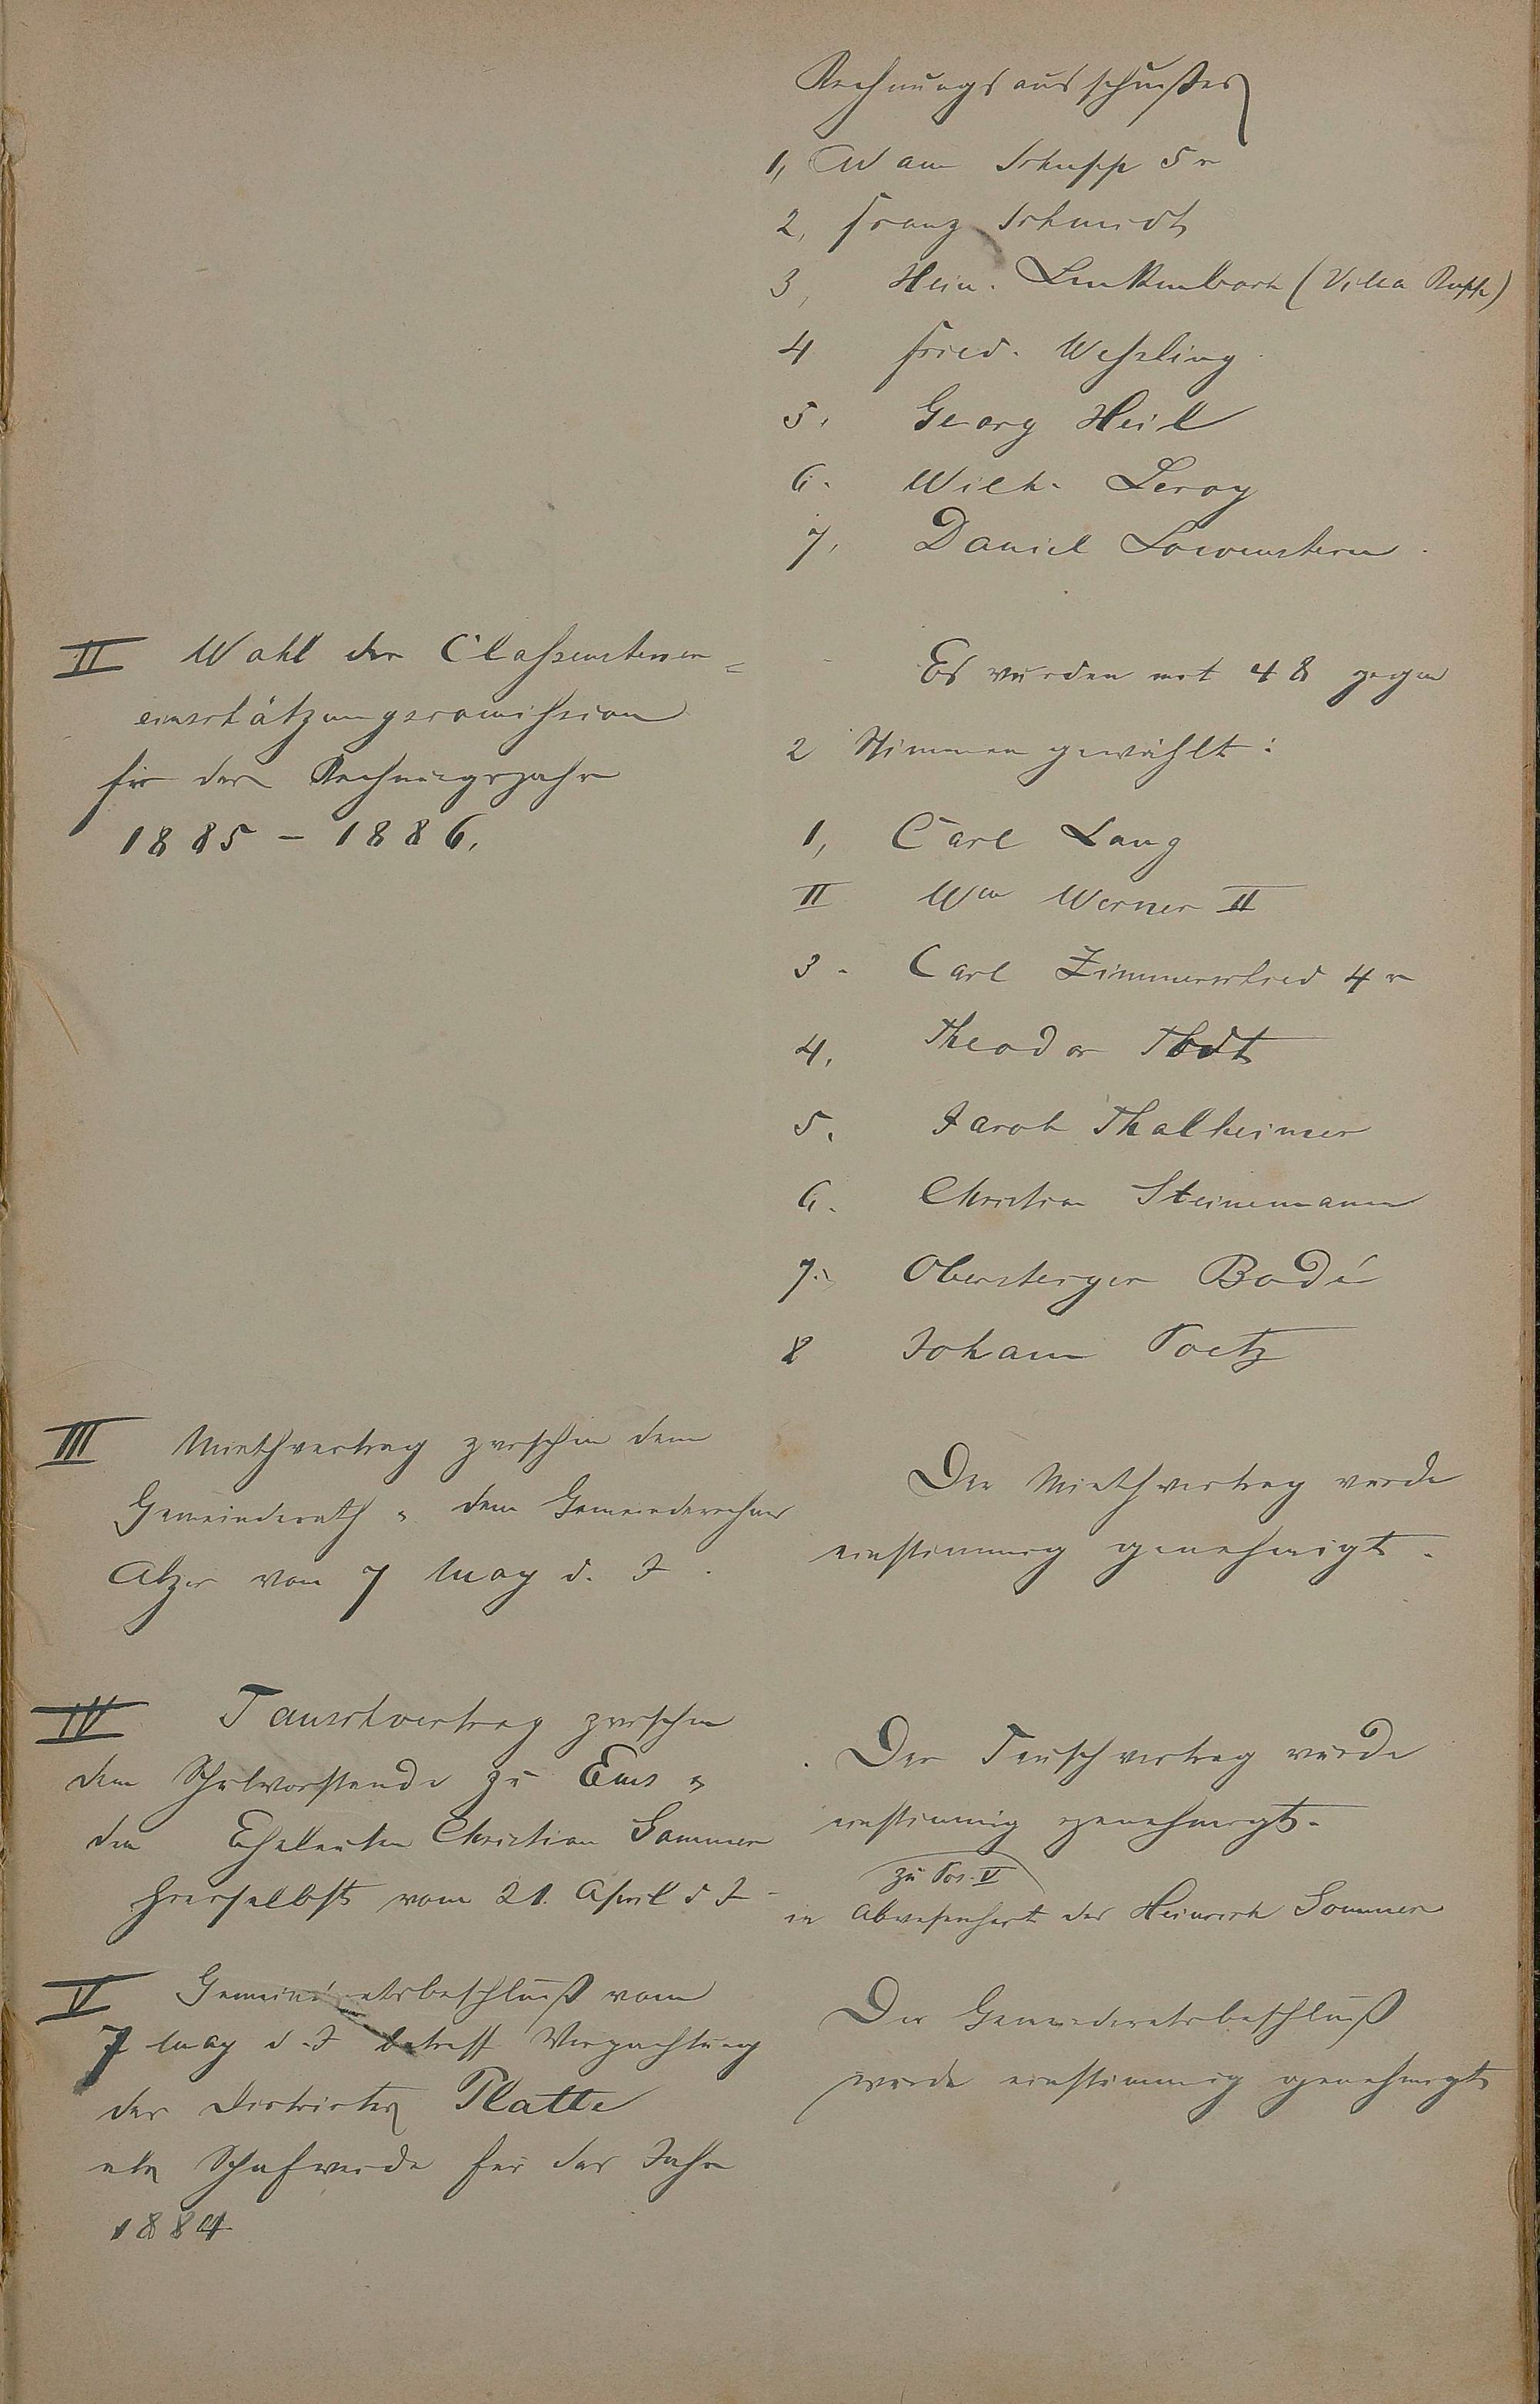 Rechnungsausschußes
1, Adam Schupp 5r
2, Franz Schmidt
3, Hein. Linkenbach (Villa Rupp)
4 Fried. Weßling
5. Georg Heil
6. Wilh. Leroy
7, Daniel Löwenstern.
II Wahl der Claßensteuer=
einschätzungscomißion
für das Rechnungsjahr
1885 – 1886.
Es wurden mit 48 gegen
2 Stimmen gewählt:
1, Carl Lang
II Wm Werner II
3. Carl Zimmerschied 4r
4. Theodor Thodt
5. Jacob Thalheimer
6. Christian Steinemann
7. Obersteiger Bodé
8 Johann Poetz
III Miethvertrag zwischen dem
Gemeinderath u. dem Gemeinderechner
vom 7 May d. J.
Der Miethvertrag wurde
einstimmig genehmigt.
IV Tauschvertrag zwischen
dem Schulvorstande zu Ems u.
den Eheleuten Christian Sommer
hierselbst vom 21. April d J.
Der Tauschvertrag wurde
einstimmig genehmigt.
zu Pos. V
in Abwesenheit des Heinrich Sommer
V Gemeinderatsbeschluß vom
7 May d. J betreff Verpachtung
des Districtes Platte
als Schafweide für das Jahr
1884.
Der Gemeinderatsbeschluß
wurde einstimmig genehmigt